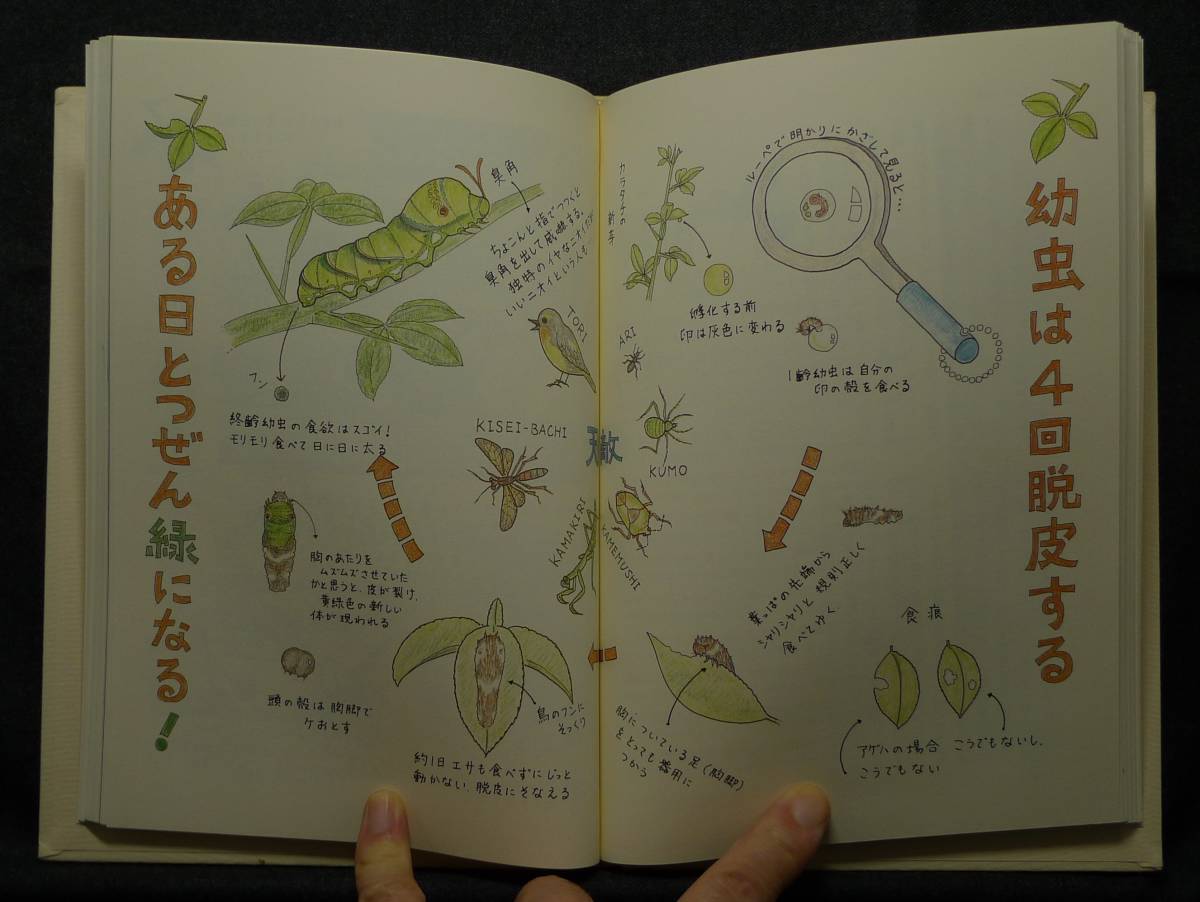 幼虫は4回脱皮する
ルーペで明かりにかざして見ると‥‥
カラタチの新芽
孵化する前
卵は灰色に変わる
1齢幼虫は自分の
卵の殻を食べる
葉っぱの先端から
シャリシャリと規則正しく
食べてゆく
食痕
アゲハの場合
こうでもない
こうでもないし、
胸についている足(胸脚)
をとっても器用に
つかう
ARI
KUMO
天敵
KAMEMUSHI
KAMAKIRI
KISEI-BACHI
TORI
臭角
ちょこんと指でつつくと
臭角を出して威嚇する。
独特のイヤなニオイだが
いいニオイという人も
フン
終齢幼虫の食欲はスゴイ!
モリモリ食べて日に日に太る
胸のあたりを
ムズムズさせていた
かと思うと、皮が裂け、
黄緑色の新しい
体が現われる
頭の殻は胸脚で
ケおとす
鳥のフンに
そっくり
約1日エサも食べずにじっと
動かない、脱皮にそなえる
ある日とつぜん緑になる!